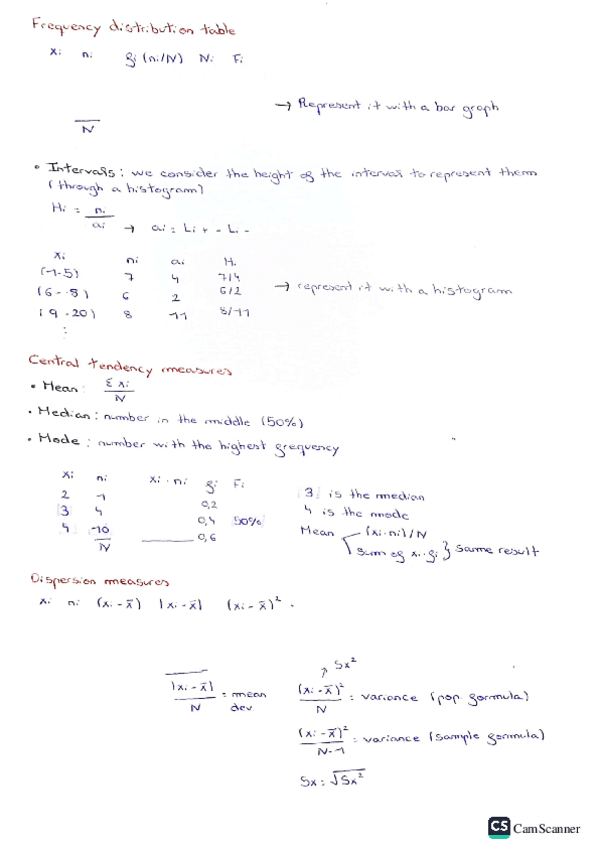 Frequency distribution table
xi ni fi (ni/N) Ni Fi
→ Represent it with a bar graph
N
• Intervals: we consider the height of the interval to represent them
(through a histogram)
Hi = ni/ai → ai = Li+ - Li-
xi ni ai Hi
(1-5) 7 4 7/4
(6-8) 6 2 6/2
(9-20) 8 11 8/11
⋮
→ represent it with a histogram
Central tendency measures
• Mean: Σxi/N
• Median: number in the middle (50%)
• Mode: number with the highest frequency
xi ni xi·ni fi Fi
2 1 0,2
3 4 0,4 50%
4 10 0,6
N
3 is the median
4 is the mode
Mean (xi·ni)/N
sum of xi·fi } same result
Dispersion measures
xi ni (xi-x̄) |xi-x̄| (xi-x̄)².
|xi-x̄|/N = mean dev
↗ Sx²
(xi-x̄)²/N = variance (pop. formula)
(xi-x̄)²/N-1 = variance (sample formula)
Sx = √Sx²
CS CamScanner